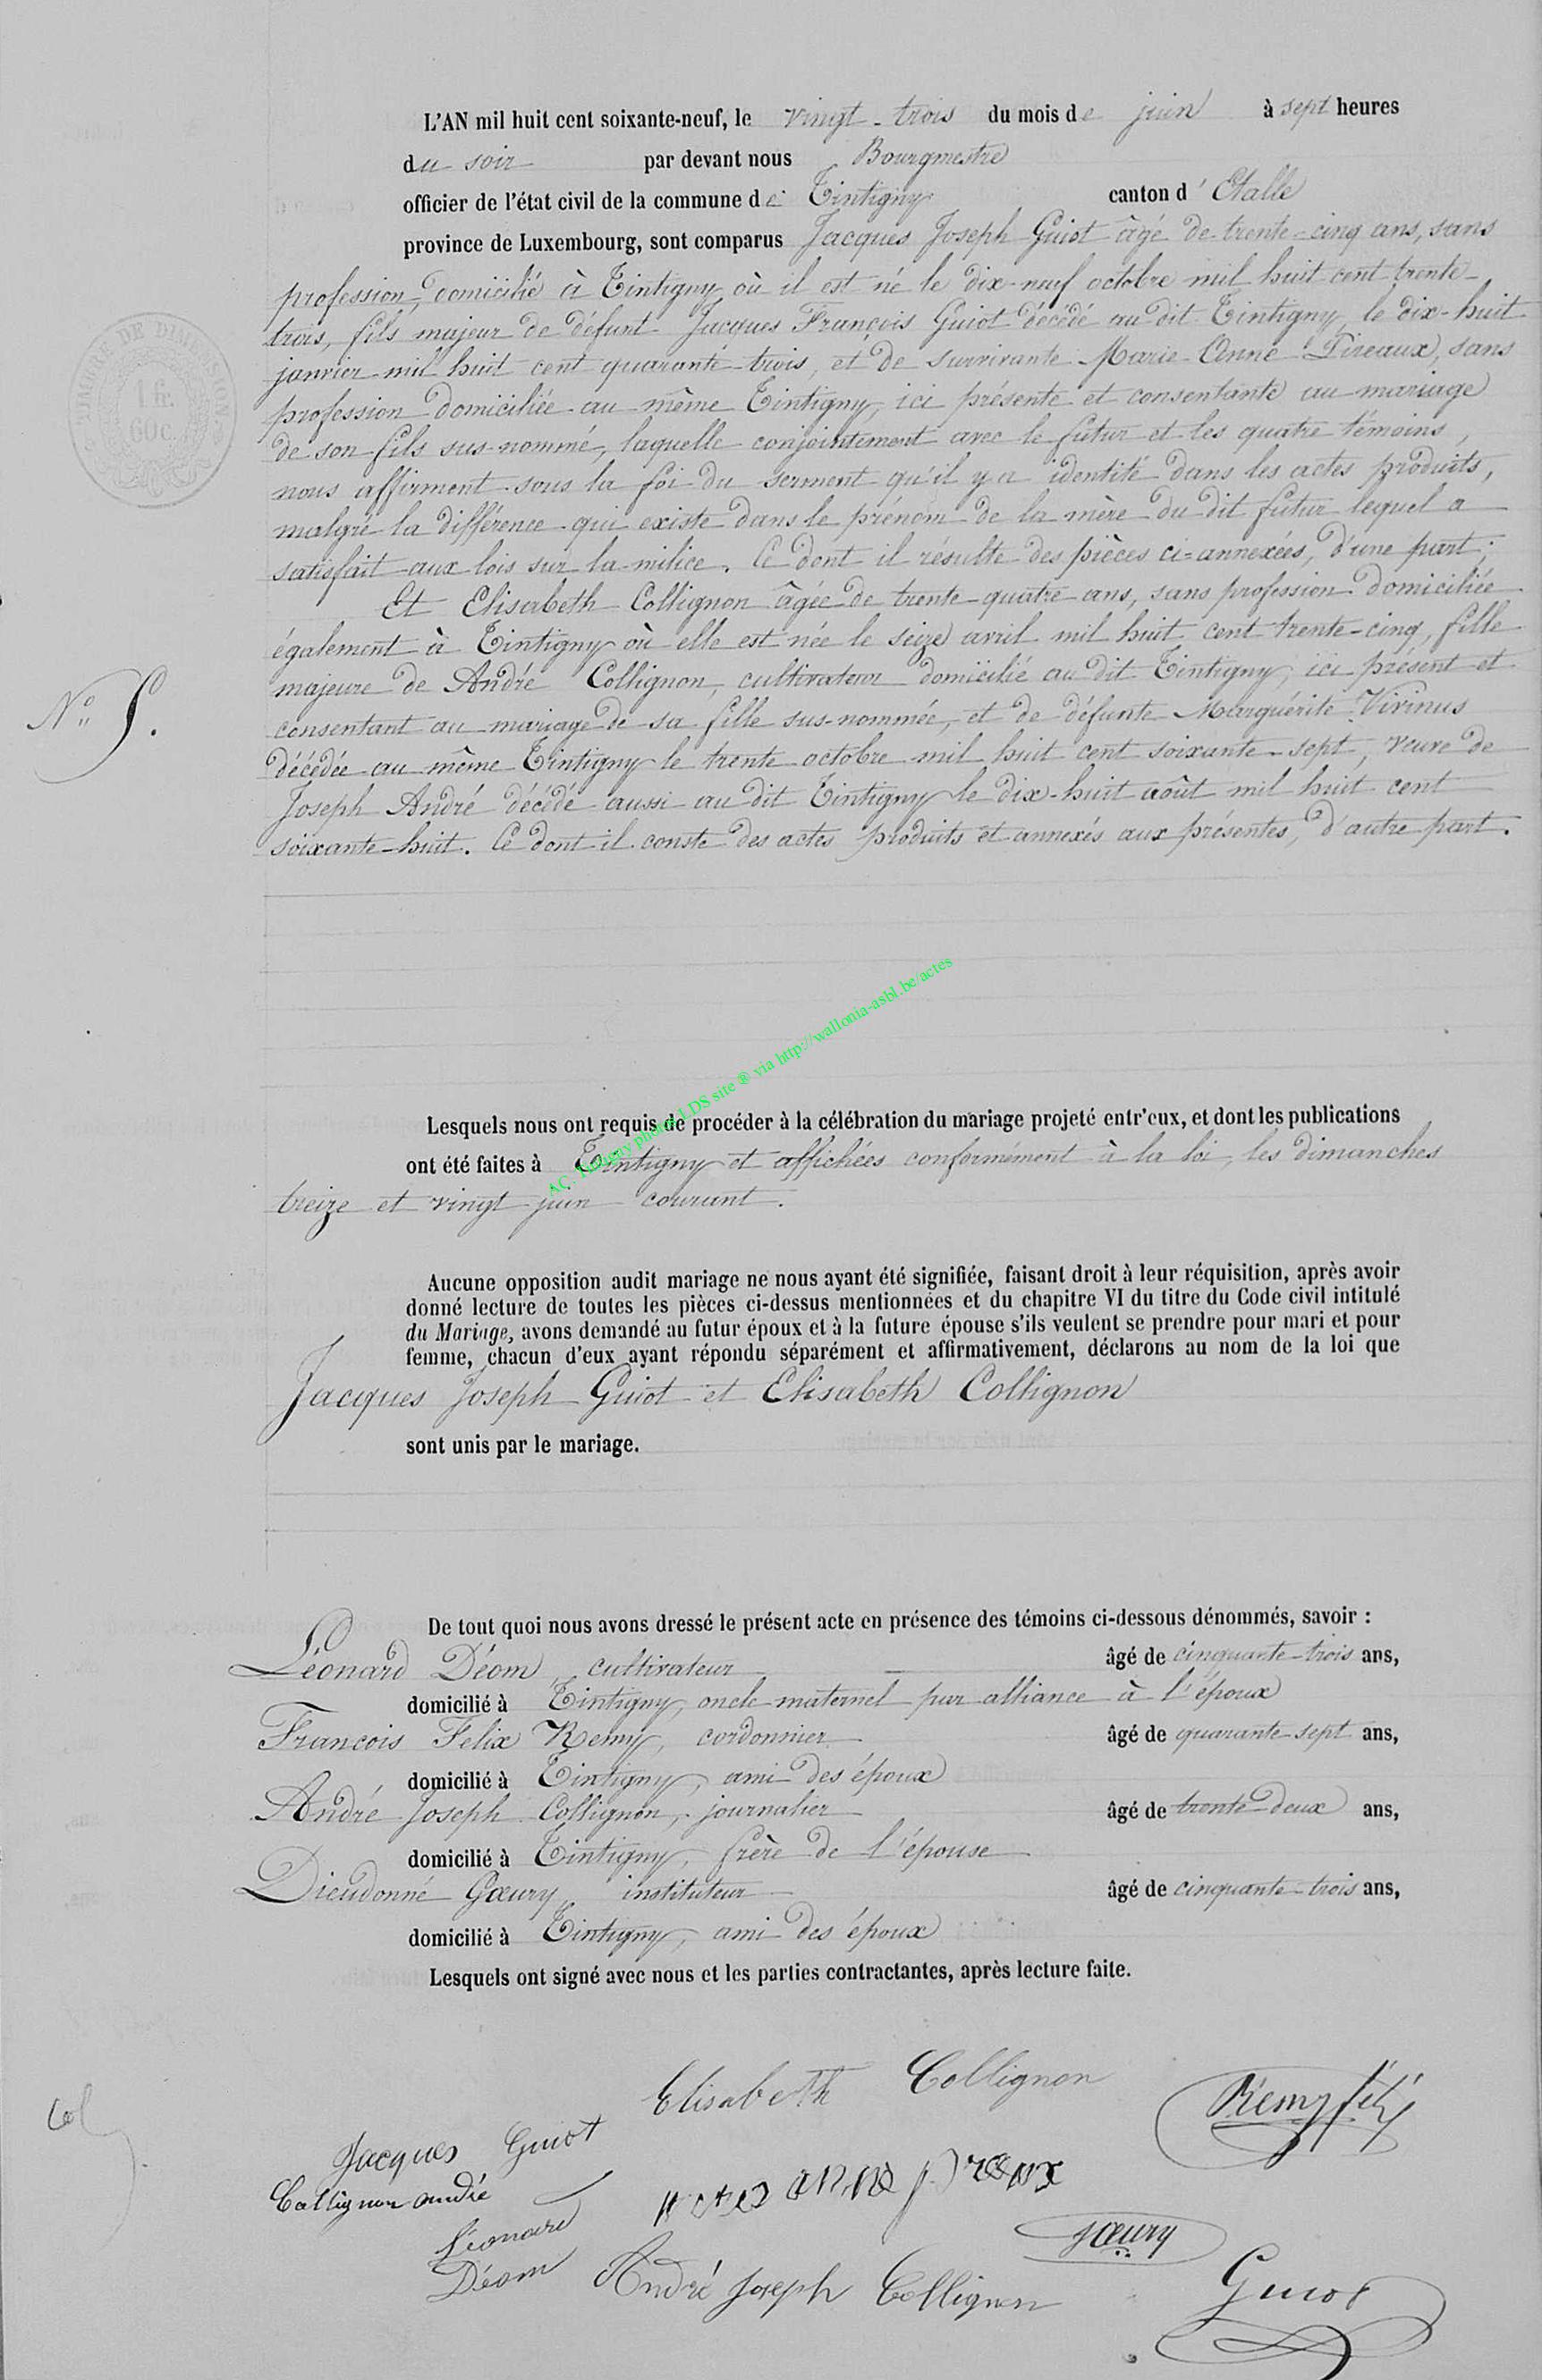 L'AN mil huit cent soixante-neuf, le vingt-trois du mois de juin à sept heures
du soir par devant nous Bourgmestre
officier de l'état civil de la commune de Tintigny canton d'Etalle
province de Luxembourg, sont comparus Jacques Joseph Guiot âgé de trente-cinq ans, sans
profession, domicilié à Tintigny où il est né le dix-neuf octobre mil huit cent trente-
trois, fils majeur de défunt Jacques François Guiot décédé au dit Tintigny, le dix-huit
janvier mil huit cent quarante-trois, et de survivante Marie-Anne Pireaux, sans
profession domiciliée au même Tintigny, ici présente et consentante au mariage
de son fils sus-nommé, laquelle conjointement avec le futur et les quatre témoins,
nous affirment sous la foi du serment qu'il y a identité dans les actes produits,
malgré la différence qui existe dans le prénom de la mère du dit futur lequel a
satisfait aux lois sur la milice. Ce dont il résulte des pièces ci-annexées, d'une part;
Et Elisabeth Collignon âgée de trente-quatre ans, sans profession domiciliée
également à Tintigny où elle est née le seize avril mil huit cent trente-cinq, fille
majeure de André Collignon, cultivateur domicilié au dit Tintigny, ici présent et
N°
consentant au mariage de sa fille sus-nommée, et de défunte Marguérite Virinus
décédée au même Tintigny le trente octobre mil huit cent soixante-sept, veuve de
Joseph André décédé aussi au dit Tintigny le dix-huit août mil huit cent
soixante-huit. Ce dont il conste des actes produits et annexés aux présentes, d'autre part.
TIMBRE DE DIMENSION
1 fr.
60 c.
AC. Tintigny photos LDS site ® via http://wallonia-asbl.be/actes
Lesquels nous ont requis de procéder à la célébration du mariage projeté entr'eux, et dont les publications
ont été faites à Tintigny et affichées conformément à la loi, les dimanches
treize et vingt juin courant.
Aucune opposition audit mariage ne nous ayant été signifiée, faisant droit à leur réquisition, après avoir
donné lecture de toutes les pièces ci-dessus mentionnées et du chapitre VI du titre du Code civil intitulé
du Mariage, avons demandé au futur époux et à la future épouse s'ils veulent se prendre pour mari et pour
femme, chacun d'eux ayant répondu séparément et affirmativement, déclarons au nom de la loi que
Jacques Joseph Guiot et Elisabeth Collignon
sont unis par le mariage.
De tout quoi nous avons dressé le présent acte en présence des témoins ci-dessous dénommés, savoir :
Léonard Déom, cultivateur âgé de cinquante-trois ans,
domicilié à Tintigny, oncle maternel par alliance à l'époux
Francois Felix Remy, cordonnier âgé de quarante-sept ans,
domicilié à Tintigny, ami des époux
André Joseph Collignon, journalier âgé de trente-deux ans,
domicilié à Tintigny, frère de l'épouse
Dieudonné Gœury, instituteur âgé de cinquante-trois ans,
domicilié à Tintigny, ami des époux
Lesquels ont signé avec nous et les parties contractantes, après lecture faite.
Elisabeth Collignon
Remy
Jacques Guiot
Collignon andré
Léonard
Déom
gœury
André Joseph Collignon
Guiot